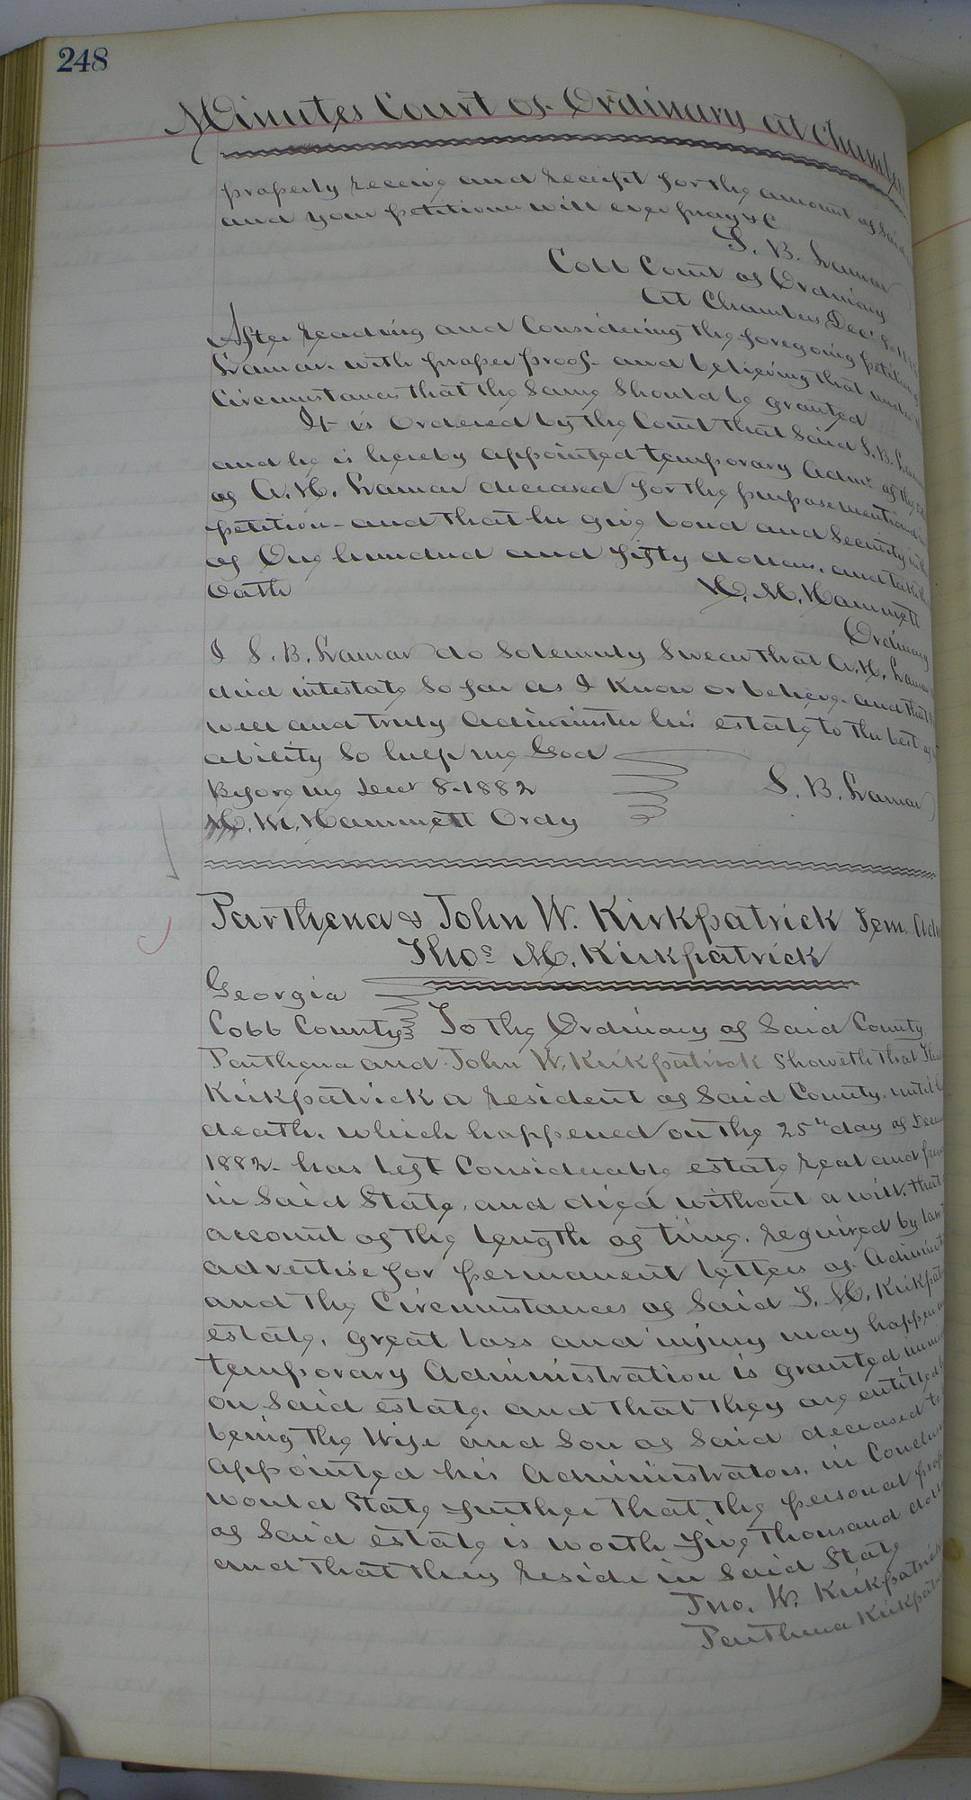 248
Minutes Court of Ordinary at Chambers
property receive and receipt for the amount of said
and your petitioner will ever pray &C
S. B. Lamar
Cobb Court of Ordinary
At Chambers Dec 8
After reading and Considering the foregoing petition
Lamar. with proper proof. and believing that under
Circumstances that the Same Should be granted
It is Ordered by the Court that Said S. B. Lamar
and he is hereby appointed temporary Admr of the
of A. H. Lamar deceased for the purpose mentioned
petition- and that he give bond and Security in the
of One hundred and fifty dollars. and take the
Oath
H. M. Hammett
Ordinary
I S. B. Lamar do Solemnly Swear that A. H. Lamar
died intestate So far as I Know or believe. and that
well and truly administer his estate to the best of
ability So help me God
Before me Decr 8-1882
S. B. Lamar
H. M. Hammett Ordy
Parthena & John W. Kirkpatrick Tem. Adm
Thos M. Kirkpatrick
Georgia
Cobb County To the Ordinary of Said County
Parthena and John W. Kirkpatrick Showeth that
Kirkpatrick a resident of Said County. until
death. which happened on the 25th day of
1882- has left Considerable estate real and
in Said State. and died without a will. that
account of the length of time. required by law
advertise for permanent letters of
and the Circumstances of Said T. M.
estate. great loss and injury may happen
temporary Administration is granted
on Said estate. and that they are entitled
being the Wife and Son of Said deceased to
appointed his Administrators. in
would State further that the personal
of Said estate is worth five thousand
and that they reside in Said State
Jno. W. Kirkpatrick
Parthena